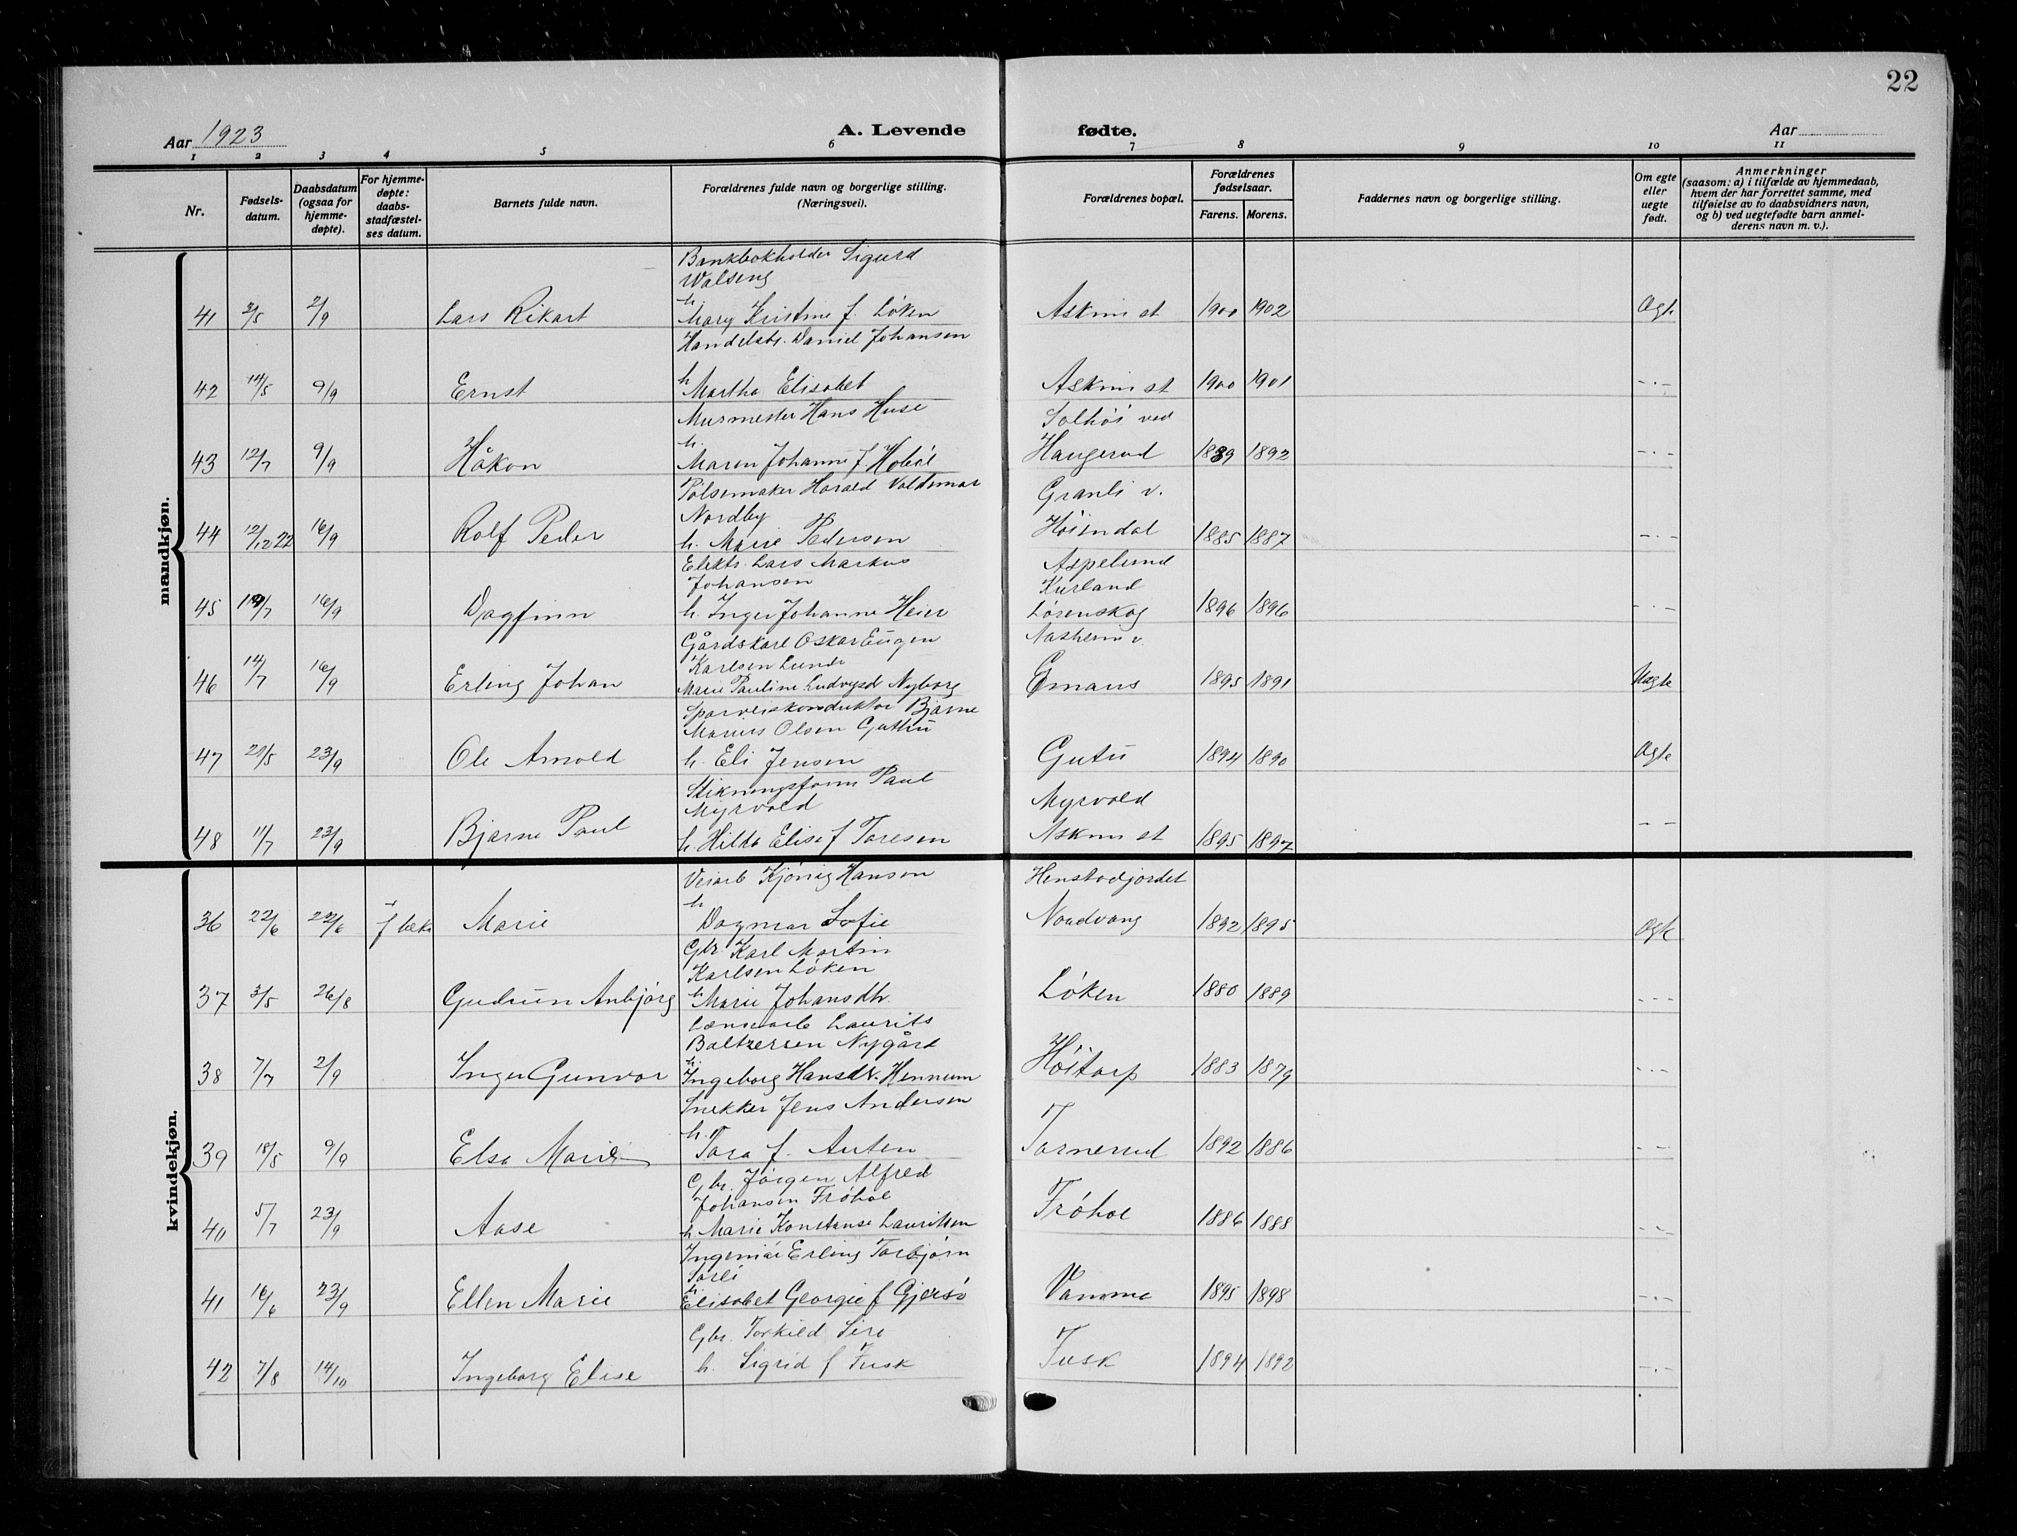 22
Aar 1923
A. Levende fødte.
Aar
1 2 3 4 5 6 7 8 9 10 11
Nr.
Fødselsdatum.
Daabsdatum (ogsaa for hjemmedøpte).
For hjemmedøpte: daabsstadfæstelses datum.
Barnets fulde navn.
Forældrenes fulde navn og borgerlige stilling. (Næringsvei).
Forældrenes bopæl.
Forældrenes fødselsaar.
Farens. Morens.
Faddernes navn og borgerlige stilling.
Om egte eller uegte født.
Anmerkninger (saasom: a) i tilfælde av hjemmedaab, hvem der har forrettet samme, med tilføielse av to daabsvidners navn, og b) ved uegtefødte barn anmelderens navn m. v.).
mandkjøn.
Bankbokholder Sigurd
Walseng
41 3/5 2/9 Lars Rikart h. Mary Kristine f. Løken Askim st 1900 1902 Ægte
Handelsb. Daniel Johansen
42 14/5 9/9 Ernst h Martha Elisabet Askim st 1900 1901 - . -
Murmester Hans Huse Solhöi ved
43 12/7 9/9 Håkon h. Maren Johanne f. Hobøl Haugerud 1889 1892 - . -
Pølsemaker Harald Valdemar Granli v.
Nordby
44 12/12 22 16/9 Rolf Peder h. Marie Pedersen Höiendal 1885 1887 - . -
Elektr. Lars Markus Aspelund
Johansen Kurland
45 19/7 16/9 Dagfinn h. Inger Johanne Heier Lørenskog 1896 1896 - . -
Gårdskarl Oskar Eugen Nasheim v.
Karlsen Lunde
46 14/7 16/9 Erling Johan Marie Pauline Ludvigsd Nyborg Emaus 1895 1891 Uægte
Sporveiskonduktør Bjarne
Marius Olsen Guttu
47 29/5 23/9 Ole Arnold h. Eli Jensen Gutu 1894 1890 Ægte
Stikningsform Paul
Myrvold Myrvold
48 11/7 23/9 Bjarne Paul h. Hilda Elise f Toresen Askim st 1895 1897 - -
kvindekjøn.
Veiarb Kjønig Hansen Henstadjordet
36 22/6 22/6 Marie h Dagmar Sofie Nordvang 1892 1895 Ægte
Gbr. Karl Martin
Karlsen Løken
37 3/5 26/8 Gudrun Anbjørg h Marie Johansdtr. Løken 1880 1889 - - -
Laurits
Baltzersen Nygård
38 7/7 2/9 Inger Gunvor h. Ingeborg Hansdtr. Hennum Höitorp 1883 1879 - . -
Snekker Jens Andersen
39 18/5 9/9 Elsa Marie h. Tora f. Auten Tornerud 1892 1886 - -
Gbr. Jörgen Alfred
Johansen Fröhol
40 5/7 23/9 Aase h. Marie Konstanse Lauritsen Fröhol 1886 1888 - -
Ingeniør Erling Torbjørn
Sorli
41 16/6 23/9 Ellen Marie h. Elisabet Georgie f Gjersø Vamma 1895 1898 - . -
Gbr. Torkild Sire
42 7/8 14/10 Ingeborg Elise h. Sigrid f Fusk Fusk 1894 1892 - . -